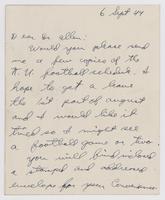 6 Sept 44
Dear Dr Allen:
Would you please send
me a few copies of the
N.U. football schedule. I
hope to get a leave
the last part of August
and I would like it
timed so I might see
a football game or two.
You will find inclosed
a stamped and addressed
envelope for your convenience